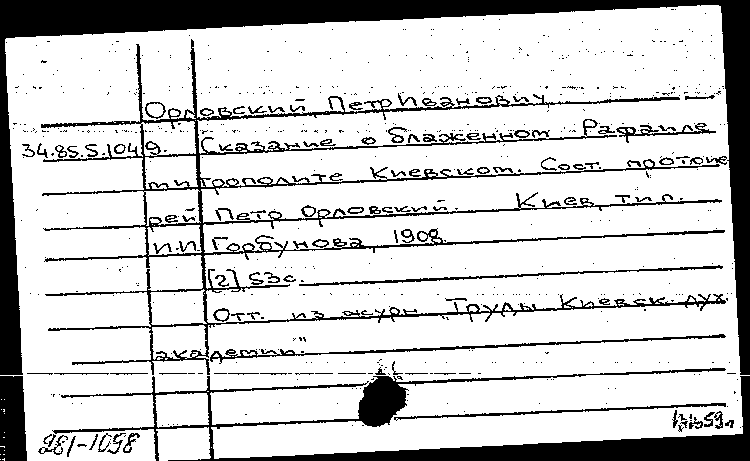 Орловский, Петр Иванович
34.85.5.104 9. Сказание о блаженном Рафаиле
митрополите Киевском. Сост. протоие
рей Петр Орловский. Киев, тип.
И.И. Горбунова, 1908.
[2] 53с.
Отт. из журн „Труды Киевск дух
академии."
281-1098